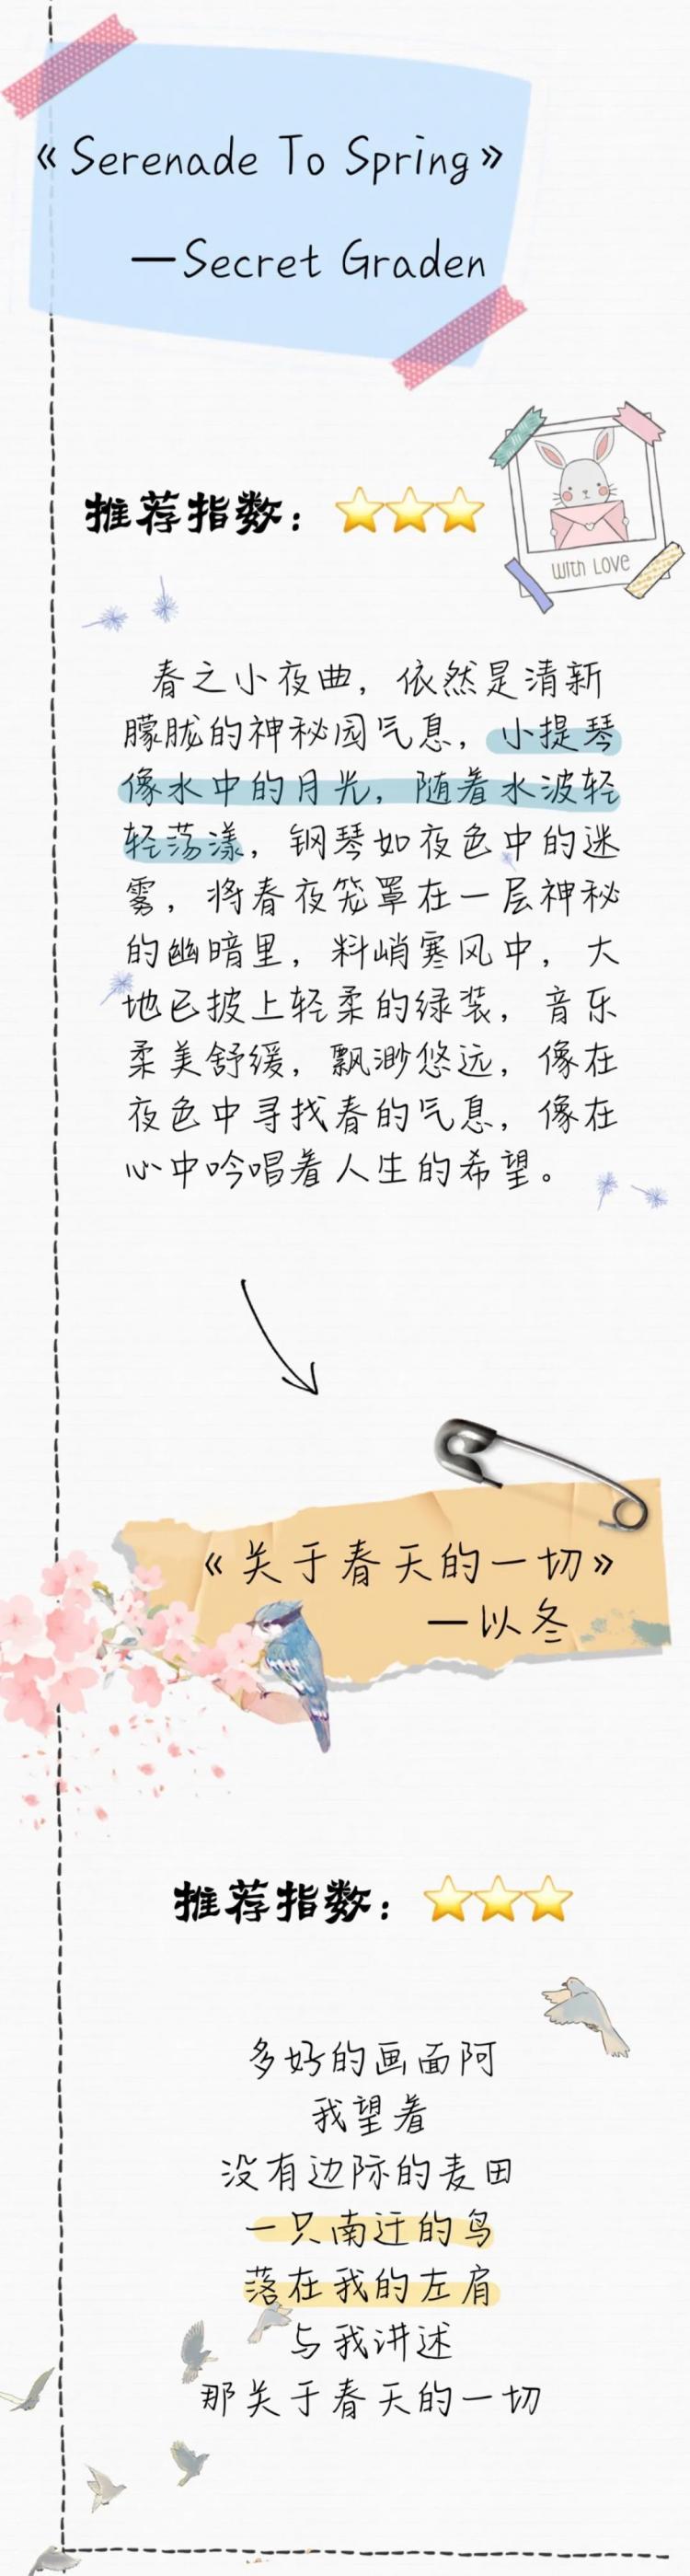 《Serenade To Spring》
—Secret Graden
推荐指数：⭐⭐⭐
with LOVE
春之小夜曲，依然是清新
朦胧的神秘园气息，小提琴
像水中的月光，随着水波轻
轻荡漾，钢琴如夜色中的迷
雾，将春夜笼罩在一层神秘
的幽暗里，料峭寒风中，大
地已披上轻柔的绿装，音乐
柔美舒缓，飘渺悠远，像在
夜色中寻找春的气息，像在
心中吟唱着人生的希望。
《关于春天的一切》
—以冬
推荐指数：⭐⭐⭐
多好的画面阿
我望着
没有边际的麦田
一只南迁的鸟
落在我的左肩
与我讲述
那关于春天的一切